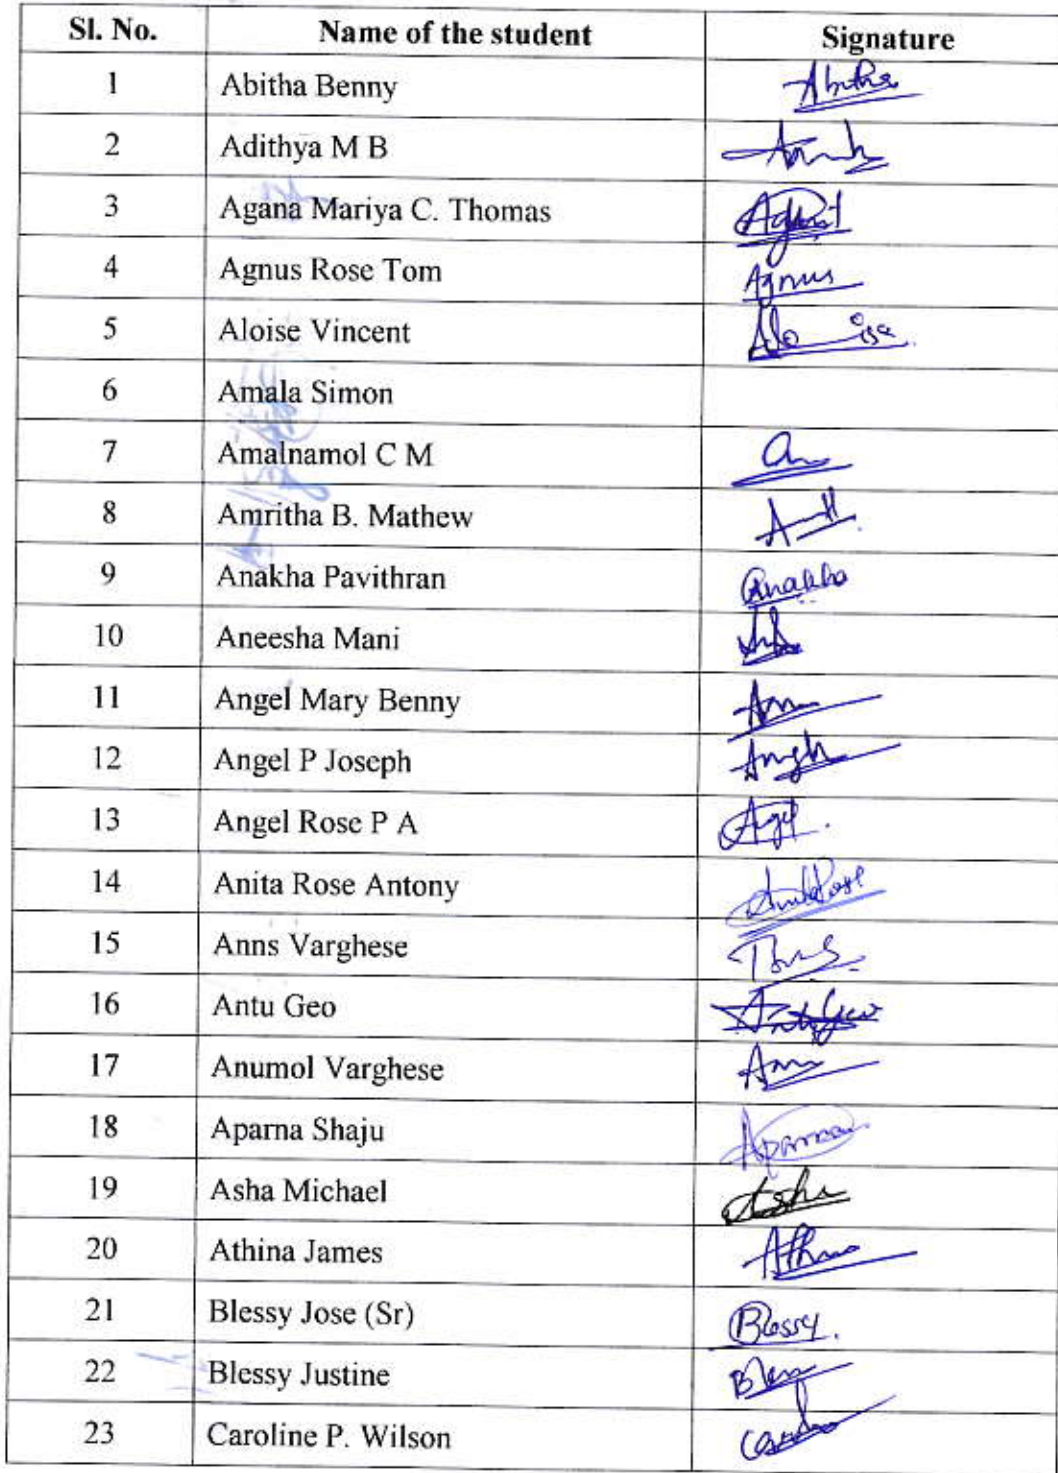 Sl. No. Name of the student Signature
1 Abitha Benny Abitha
2 Adithya M B
3 Agana Mariya C. Thomas
4 Agnus Rose Tom Agnus
5 Aloise Vincent Aloise
6 Amala Simon
7 Amalnamol C M
8 Amritha B. Mathew
9 Anakha Pavithran Anakha
10 Aneesha Mani
11 Angel Mary Benny
12 Angel P Joseph
13 Angel Rose P A
14 Anita Rose Antony
15 Anns Varghese
16 Antu Geo Antu Geo
17 Anumol Varghese
18 Aparna Shaju Aparna
19 Asha Michael Asha
20 Athina James
21 Blessy Jose (Sr) Blessy.
22 Blessy Justine
23 Caroline P. Wilson